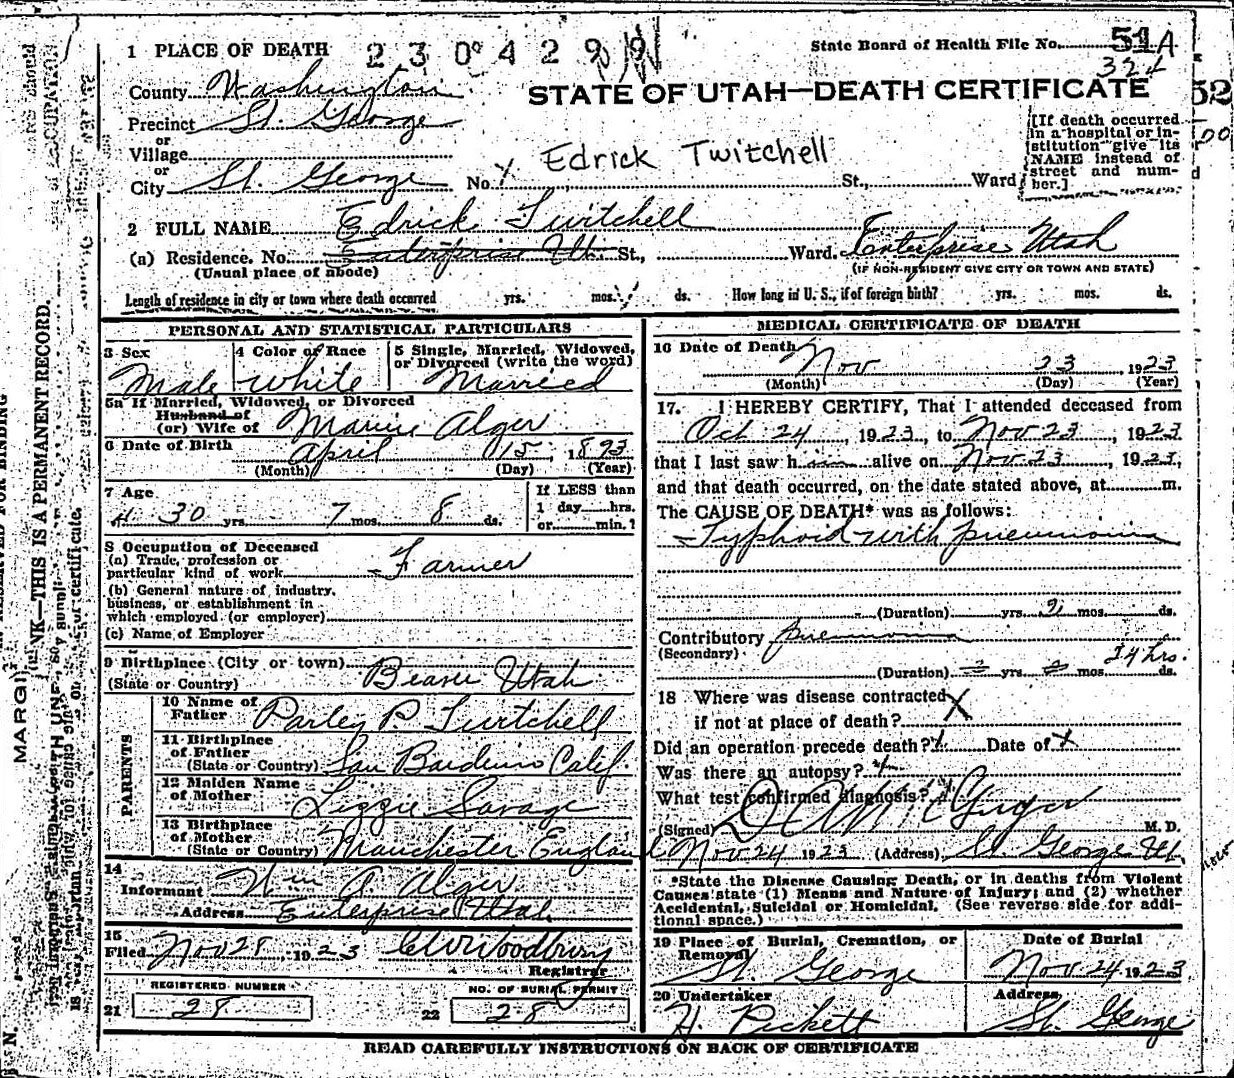 1 PLACE OF DEATH
2304299
State Board of Health File No. 51A
324
County Washington
STATE OF UTAH—DEATH CERTIFICATE
52
Precinct St. George
or
Village
or
City St. George No. St., Ward
Edrick Twitchell
[If death occurred
in a hospital or in-
stitution give its
NAME instead of
street and num-
ber.]
2 FULL NAME Edrick Twitchell
(a) Residence. No. Enterprise Ut. St., Ward. Enterprise Utah
(Usual place of abode) (IF NON-RESIDENT GIVE CITY OR TOWN AND STATE)
Length of residence in city or town where death occurred yrs. mos. ds. How long in U. S., if of foreign birth? yrs. mos. ds.
PERSONAL AND STATISTICAL PARTICULARS
3 Sex 4 Color or Race 5 Single, Married, Widowed,
or Divorced (write the word)
Male white Married
5a If Married, Widowed, or Divorced
Husband of
(or) Wife of Alger
6 Date of Birth April 15, 1893
(Month) (Day) (Year)
7 Age If LESS than
30 yrs 7 mos. 8 ds. 1 day hrs.
or min.?
8 Occupation of Deceased
(a) Trade, profession or
particular kind of work Farmer
(b) General nature of industry,
business, or establishment in
which employed (or employer)
(c) Name of Employer
9 Birthplace (City or town) Beaver Utah
(State or Country)
PARENTS
10 Name of
Father Parley P. Twitchell
11 Birthplace
of Father
(State or Country) San Bardino Calif
12 Maiden Name
of Mother Lizzie Savage
13 Birthplace
of Mother
(State or Country) Manchester England
14
Informant Wm A. Alger
Address Enterprise Utah
15
Filed Nov 28, 1923 Woodbury
Registrar
REGISTERED NUMBER NO. OF BURIAL PERMIT
21 28 22 28
MEDICAL CERTIFICATE OF DEATH
16 Date of Death Nov 23 1923
(Month) (Day) (Year)
17. I HEREBY CERTIFY, That I attended deceased from
Oct 24, 1923, to Nov 23, 1923
that I last saw him alive on Nov 23, 1923,
and that death occurred, on the date stated above, at m.
The CAUSE OF DEATH* was as follows:
Typhoid with pneumonia
(Duration) yrs. mos. ds.
Contributory pneumonia
(Secondary)
24 hrs.
(Duration) yrs mos ds.
18 Where was disease contracted X
if not at place of death?
Did an operation precede death? Date of x
Was there an autopsy?
What test confirmed diagnosis?
(Signed) M. D.
Nov 24 1923 (Address) St. George Ut.
*State the Disease Causing Death, or in deaths from Violent
Causes state (1) Means and Nature of Injury; and (2) whether
Accidental, Suicidal or Homicidal. (See reverse side for addi-
tional space.)
19 Place of Burial, Cremation, or
Removal
St George
Date of Burial
Nov. 24 1923
20 Undertaker
H. Pickett
Address
St. George
READ CAREFULLY INSTRUCTIONS ON BACK OF CERTIFICATE
INK—THIS IS A PERMANENT RECORD.